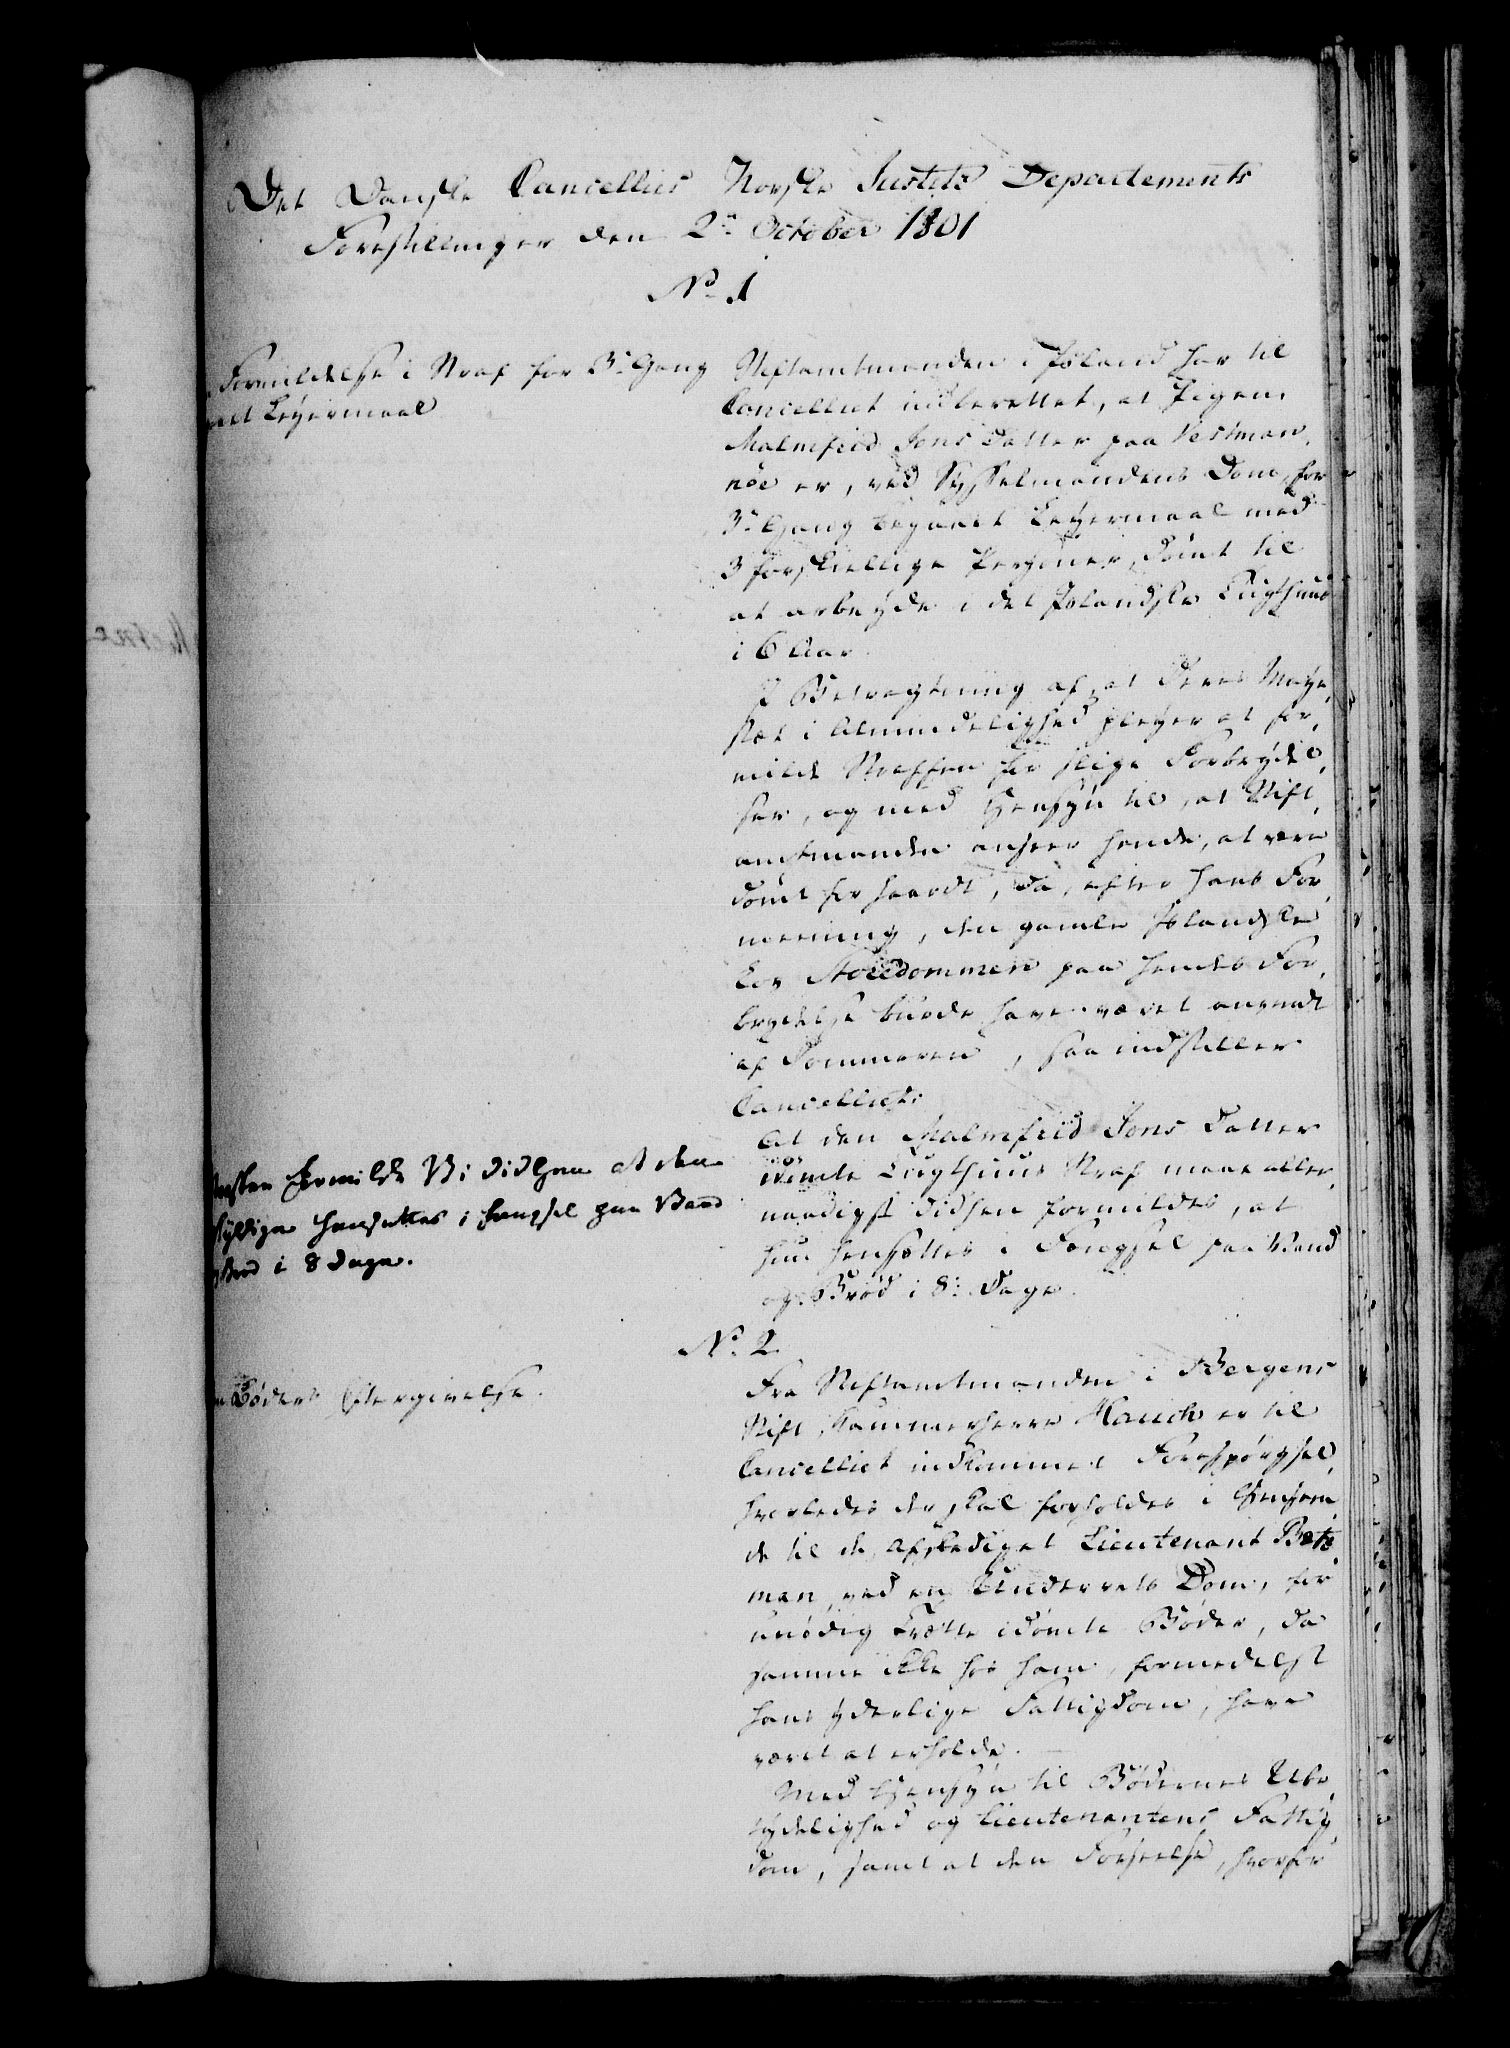 Det Danske Cancellies Norske Justits Departements
Forestillinger den 2n October 1801
No 1
Formildelse i Straf for 3e Gang
Leyermaal
Stiftamtmanden i Island har til
Cancelliet indberettet, at Pigen
Malmfrid Jons Datter paa Vestman,
nöe er, ved Sysselmandens Dom, for
3e Gang begaaet Leyermaal med
3 forskiellige Personer, dömt til
at arbeyde i det Islandske Tugthuus
i 6 Aar.
I Betragtning af, at Deres Maje,
stæt i Almindelighed pleyer at for,
milde Straffen for slige Forbrydel,
ser, og med Hensyn til, at Stift,
amtmanden anseer hende, at være
dömt for haardt, da, efter hans For,
meening, den gamle Islandske
Lov Storedommen paa hendes For,
brydelse burde have været anvendt
af Dommeren, saa indstiller
Cancelliet:
At den Malmfrid Jons Datter
idömte Tugthuus Straf maae aller,
naadigst didhen formildes, at
hun hensættes i Fængsel paa Vand
og Bröd i 8te Dage.
Straffen formilde Vi didhen at den
skyldige hensættes i fængsel paa Vand
og Bröd i 8 Dage.
No 2
Böders Eftergivelse.
Fra Stiftamtmanden i Bergens
Stift, Kammerherre Hauch er til
Cancelliet indkommet Forespörgsel,
hvorledes der skal forholdes i Henseen,
de til de, afskediget Lieutenant
man, ved en Underrets Dom, for
unödig Trætte idömte Böder, da
samme ikke hos ham, formedelst
hans yderlige Fattigdom, have
været at erholde.
Med Hensyn til Bödernes Ube,
tydelighed og Lieutenantens Fattig,
dom, samt at den Forseelse, hvorfor